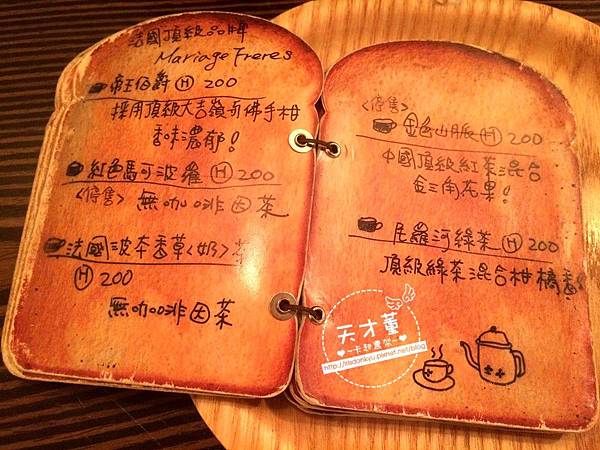 法國頂級品牌
Mariage Freres
帝王伯爵 H 200
採用頂級大吉嶺奇佛手柑
香味濃郁!
紅色馬可波羅 H 200
<停售> 無咖啡因茶
法國波本香草<奶>茶
H 200
無咖啡因茶
<停售>
金色山脈 H 200
中國頂級紅茶混合
金三角花果!
尼羅河綠茶 H 200
頂級綠茶混合柑橘香
天才董
~卡敖農架~